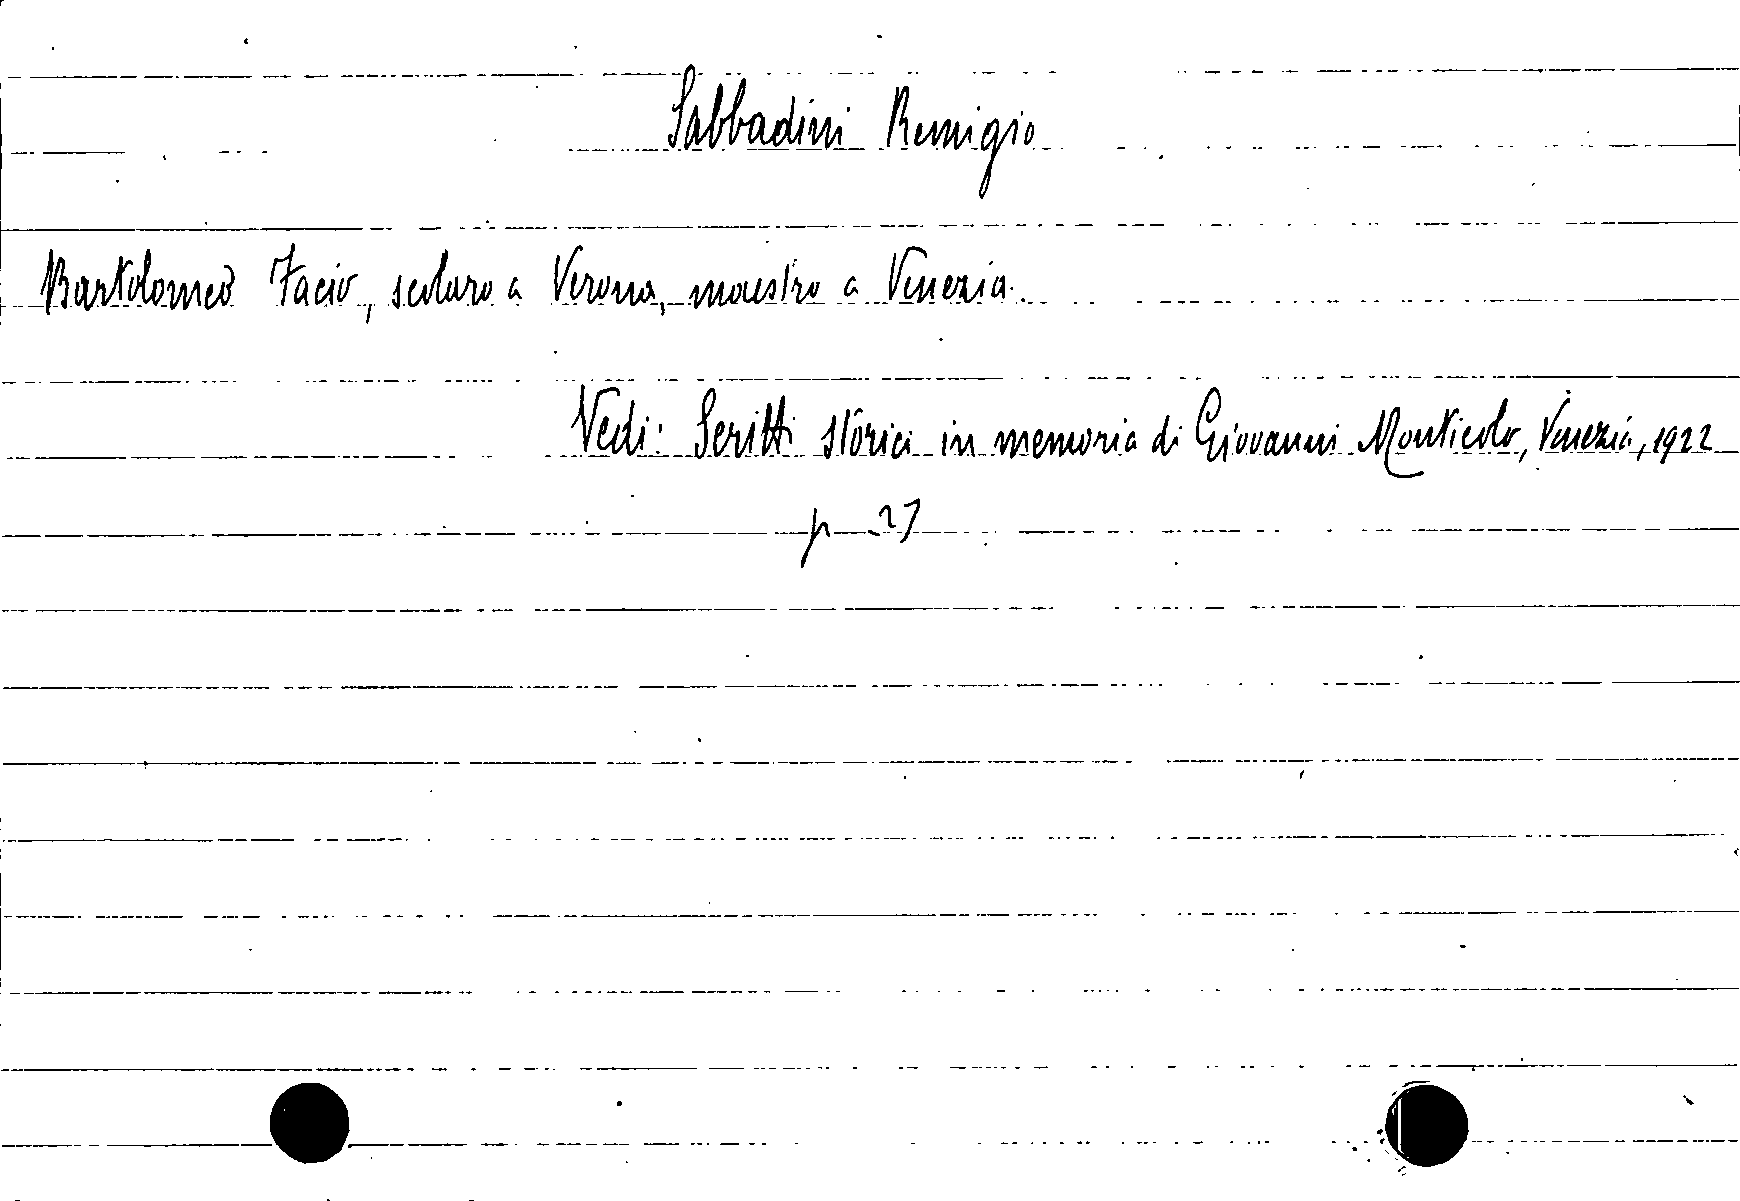 Sabbadini Remigio
Bartolomeo Facio, scolaro a Verona, maestro a Venezia.
Vedi: Scritti storici in memoria di Giovanni Monticolo, Venezia, 1922
p 27